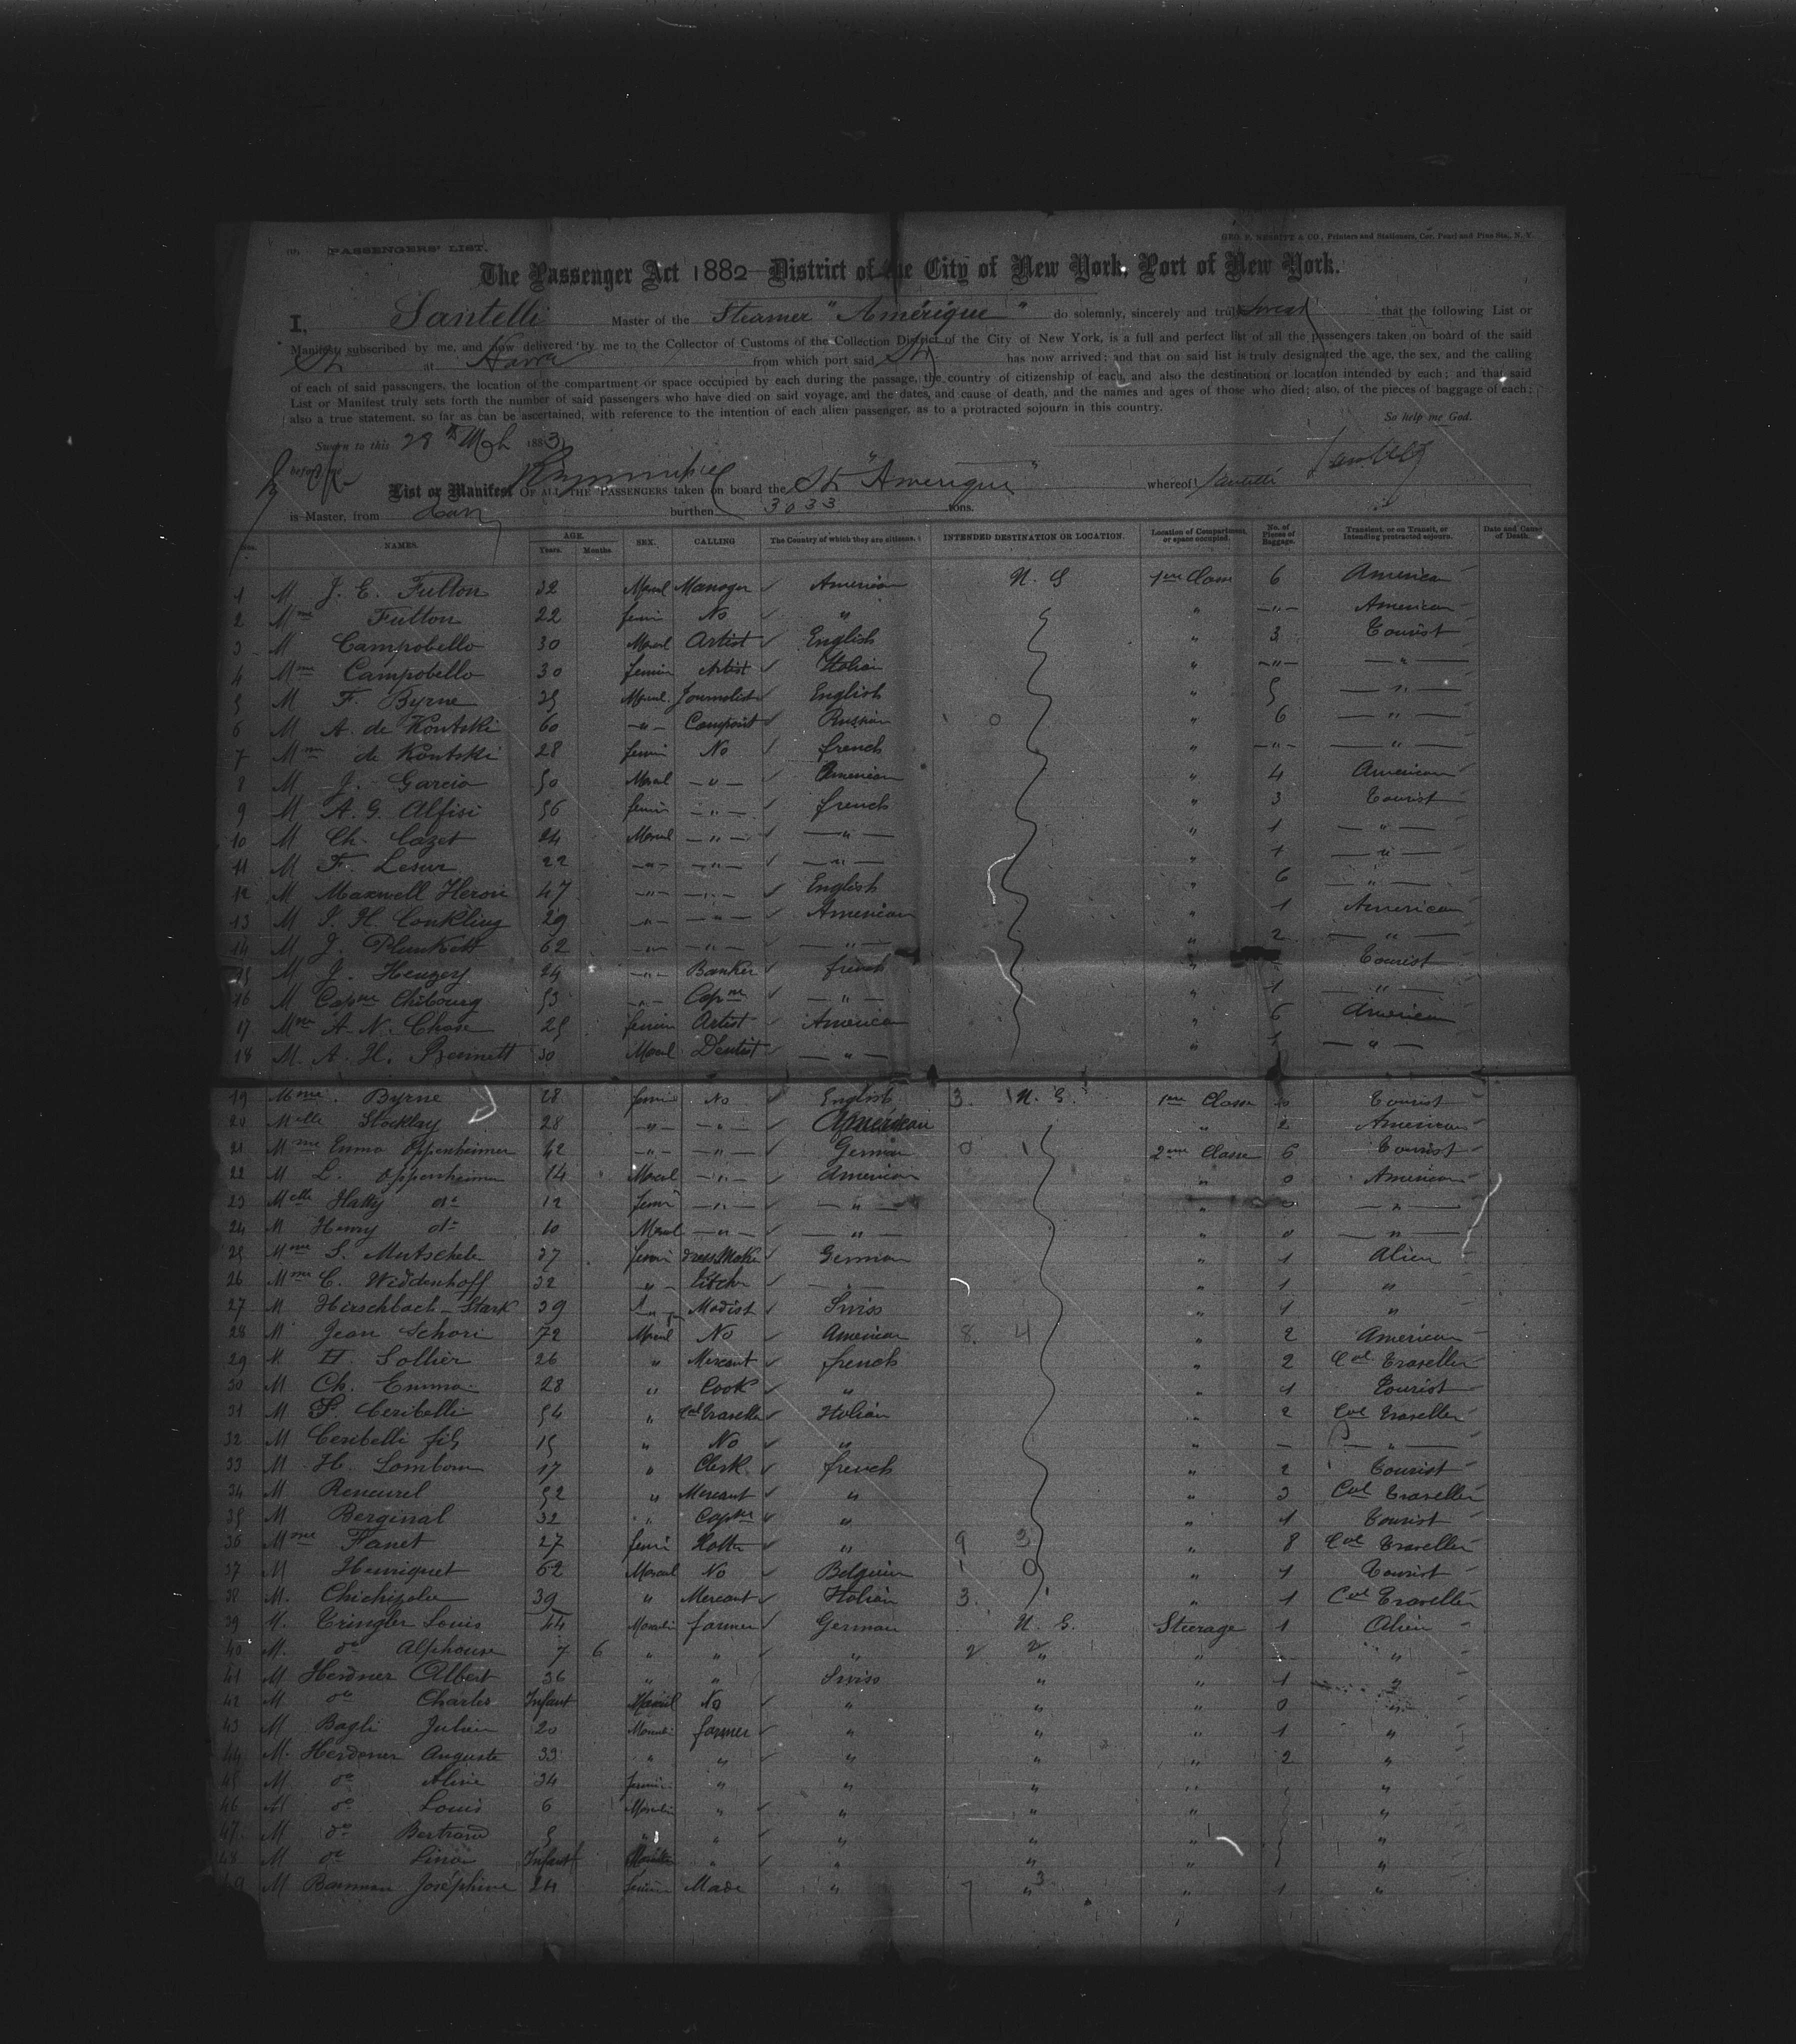 PASSENGERS' LIST.
GEO. F. NESBITT & CO., Printers and Stationers, Cor. Pearl and Pine Sts., N. Y.
The Passenger Act 1882 District of the City of New York, Port of New York.
I, Santelli Master of the Steamer "Amérique" do solemnly, sincerely and truly swear that the following List or
Manifest, subscribed by me, and now delivered by me to the Collector of Customs of the Collection District of the City of New York, is a full and perfect list of all the passengers taken on board of the said
St at Havre from which port said St has now arrived; and that on said list is truly designated the age, the sex, and the calling
of each of said passengers, the location of the compartment or space occupied by each during the passage, the country of citizenship of each, and also the destination or location intended by each; and that said
List or Manifest truly sets forth the number of said passengers who have died on said voyage, and the dates, and cause of death, and the names and ages of those who died; also, of the pieces of baggage of each;
also a true statement, so far as can be ascertained, with reference to the intention of each alien passenger, as to a protracted sojourn in this country.
So help me God.
Sworn to this 28th Mch 1883
before me
List or Manifest OF ALL THE PASSENGERS taken on board the St "Amérique" whereof Santelli
is Master, from Havre burthen 3033 tons.
Nos. NAMES. AGE. Years. Months. SEX. CALLING The Country of which they are citizens. INTENDED DESTINATION OR LOCATION. Location of Compartment or space occupied. No. of Pieces of Baggage. Transient, or on Transit, or Intending protracted sojourn. Date and Cause of Death.
1 M J. E. Fulton 32 Mascul Manager American 1ere Classe 6 American
2 Mme Fulton 22 femin No " " —"— American
3 M Campobello 30 Mascul Artist English " 3 Tourist
4 Mme Campobello 30 femin Artist Italian " —"— —"—
5 M F. Byrne 35 Mascul Journalist English " 5 —"—
6 M A. de Kontski 60 —"— Russian " 6 —"—
7 Mme de Kontski 28 femin No french " —"— —"—
8 M J. Garcia 50 Mascul —"— American " 4 American
9 M A. G. Alfisi 56 femin —"— french " 3 Tourist
10 M Ch. Cazet 24 Mascul —"— —"— " 1 —"—
11 M F. Lesur 22 —"— —"— —"— " 1 —"—
12 M Maxwell Heron 47 —"— —"— English " 6 —"—
13 M I. H. Conkling 29 —"— —"— American " 1 American
14 M J. Plunkett 62 —"— —"— —"— " 2 —"—
15 M J. Hengery 24 —"— Banker french " Tourist
16 M Capne Chibourg 53 —"— Capne —"— " 1 —"—
17 Mme A. N. Chase 25 femin Artist American " 6 American
18 M. A. H. Bennett 30 Mascul Dentist —"— " 1 —"—
19 Mme Byrne 28 femin No English 3. 1ere Classe 0 Tourist
20 Melle Stocklay 28 —"— —"— American " 2 American
21 Mme Emma Oppenheimer 42 —"— —"— German 0 1 2eme Classe 6 Tourist
22 M L. Oppenheimer 14 Mascul —"— American " 0 American
23 Melle Hatty do 12 femin —"— —"— " 0 —"—
24 M Henry do 10 Mascul —"— —"— " 0 —"—
25 Mme S. Mutschele 37 femin dress Maker German " 1 Alien
26 Mme C. Widdenhoff 32 " —"— " 1 "
27 M Hirschbach-Stark 39 Modist Swiss " 1 "
28 M Jean Schori 72 Mascul No American 8. 4 " 2 American
29 M. H. Sollier 26 " Mercant french " 2 Col Traveller
30 M Ch. Emma 28 " Cook " " 1 Tourist
31 M F. Ceribelli 54 " Col Traveller Italian " 2 Col Traveller
32 M Ceribelli fils 15 " No " " — —"—
33 M H. Lambour 17 " Clerk french " 2 Tourist
34 M Renaurel 52 " Mercant " " 3 Col Traveller
35 M Berginal 32 " Capne " " 1 Tourist
36 Mme Fanet 27 femin " 9 3 " 8 Col Traveller
37 M Henriquet 62 Mascul No Belgium 1 0 " 1 Tourist
38 M. 39 " Mercant Italian 3. 1 " 1 Col Traveller
39 M. Tringler Louis 44 Masculin farmer German Sterage 1 Alien
40 M. do Alphonse 7 6 " " " 2 2 " " "
41 M Herdner Albert 36 " " Swiss " " 1 "
42 M do Charles Infant Mascul No " " " 0 "
43 M Bagli Julien 20 Masculin farmer " " " 1 "
44 M. Herdner Auguste 33 " " " " " 2 "
45 M do Aline 34 femin " " " " "
46 M do Louis 6 Masculin " " " " "
47 M do Bertrand 5 " " " " " "
48 M do Lina Infant " " " " "
49 M Josephine 24 femin Made " 7 " 3 " 1 "